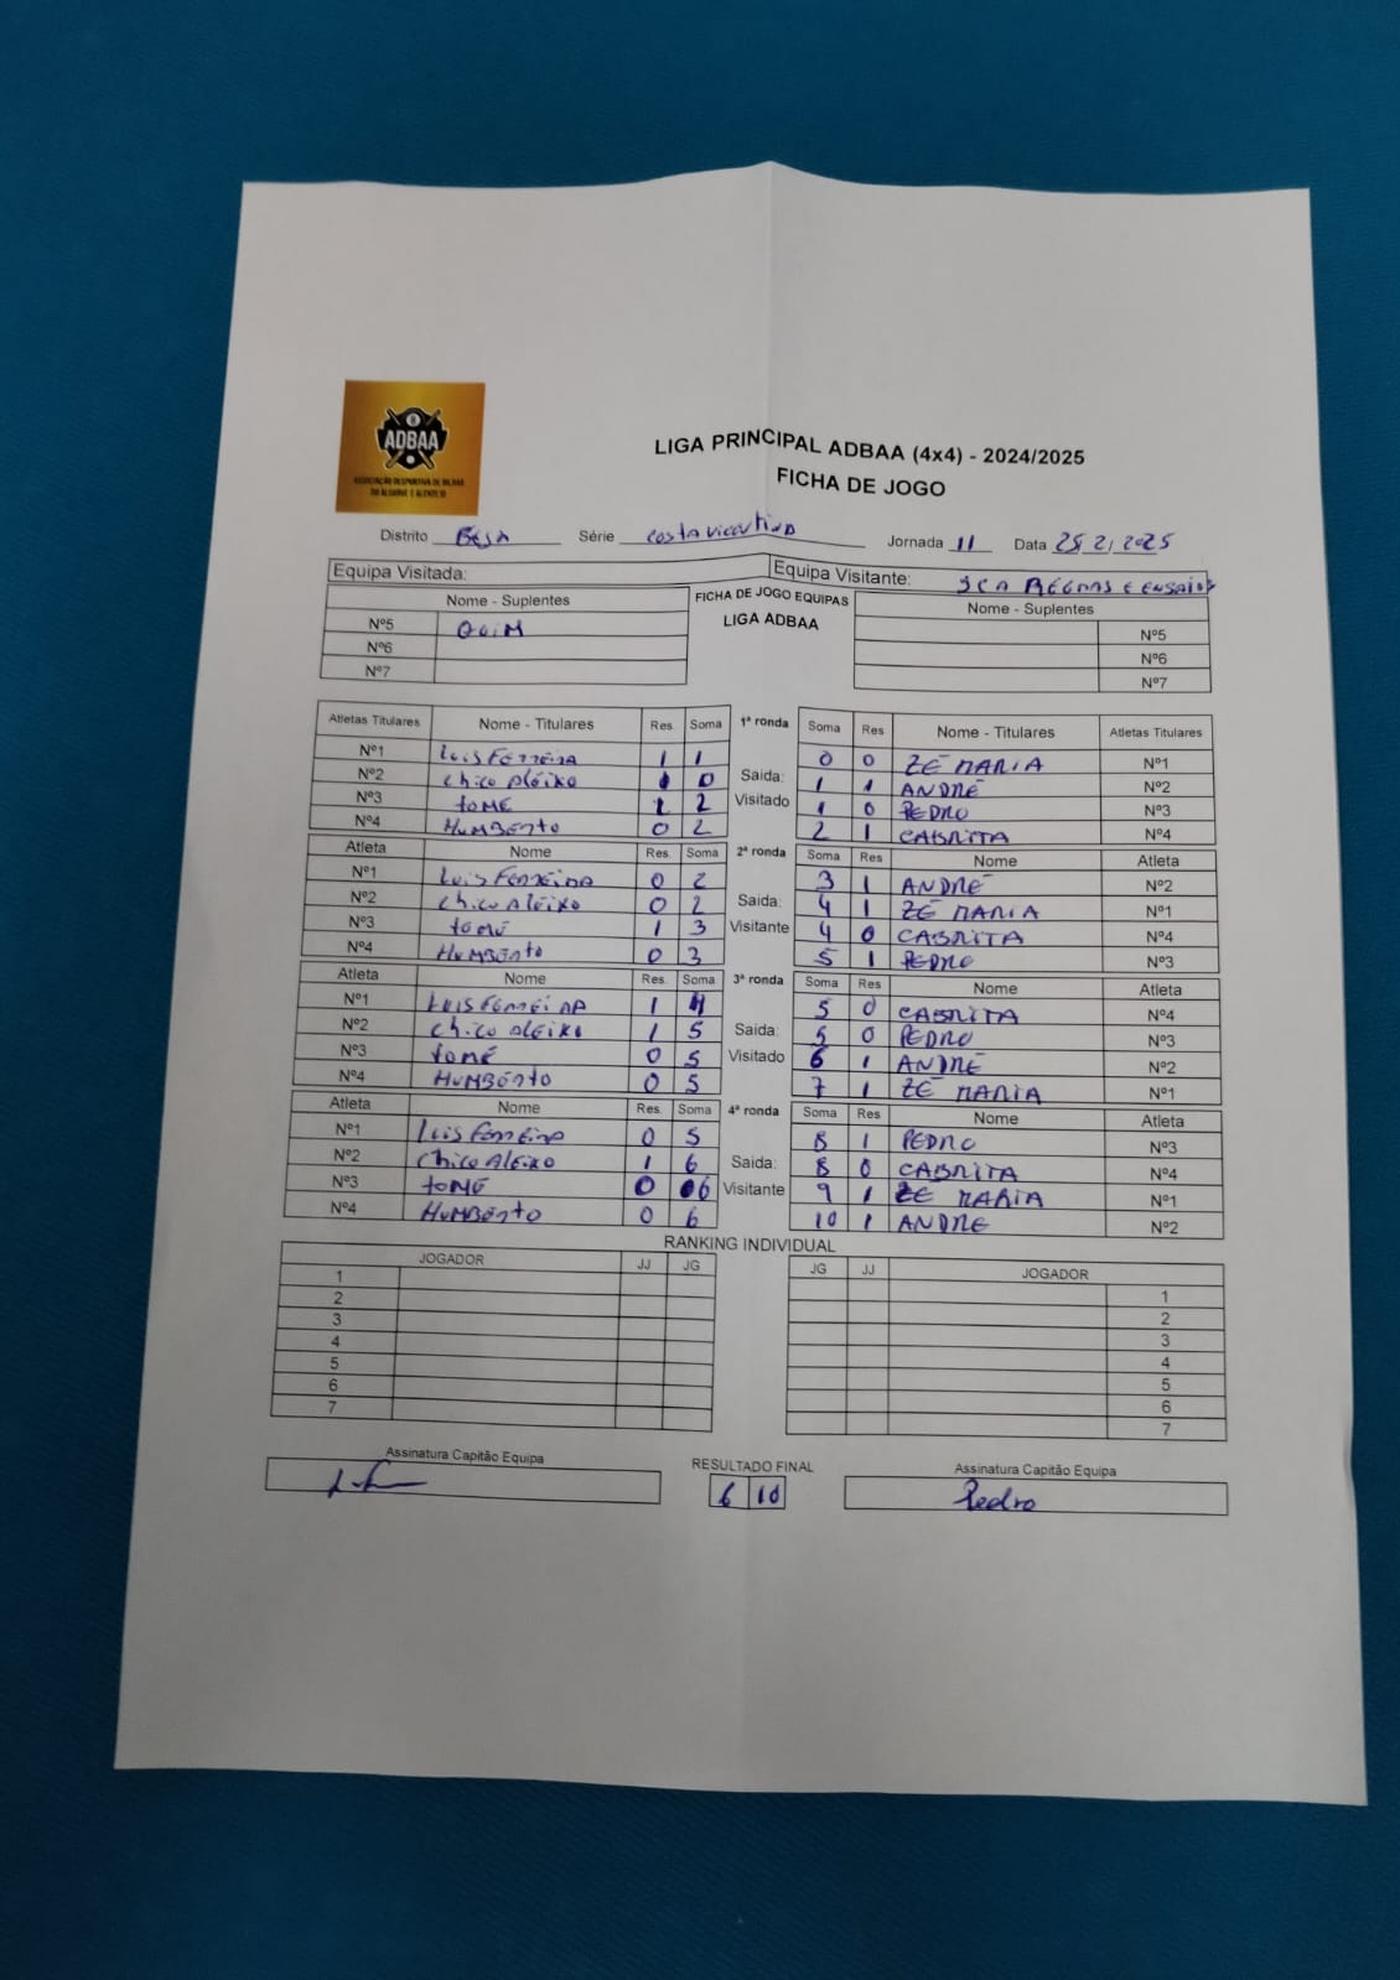 ADBAA
ASSOCIAÇÃO DESPORTIVA DE BILHAR
DO ALGARVE E ALENTEJO
LIGA PRINCIPAL ADBAA (4x4) - 2024/2025
FICHA DE JOGO
Distrito BEJA Série costa vicentina Jornada 11 Data 25/2/2025
Equipa Visitada: Equipa Visitante: SCA REGNAS E ENSAIOS
Nome - Suplentes FICHA DE JOGO EQUIPAS Nome - Suplentes
LIGA ADBAA
Nº5 QUIM Nº5
Nº6 Nº6
Nº7 Nº7
Atletas Titulares Nome - Titulares Res. Soma 1ª ronda Soma Res Nome - Titulares Atletas Titulares
Nº1 Luis FERREIRA 1 1 0 0 ZÉ MARIA Nº1
Nº2 Chico Aleixo 0 Saida: 1 1 ANDRÉ Nº2
Nº3 tomé 1 2 Visitado 1 0 PEDRO Nº3
Nº4 HUMBERTO 0 2 2 1 CABRITA Nº4
Atleta Nome Res. Soma 2ª ronda Soma Res Nome Atleta
Nº1 Luis FERREIRA 0 2 3 1 ANDRÉ Nº2
Nº2 Chico Aleixo 0 2 Saida: 4 1 ZÉ MARIA Nº1
Nº3 tomé 1 3 Visitante 4 0 CABRITA Nº4
Nº4 HUMBERTO 0 3 5 1 PEDRO Nº3
Atleta Nome Res. Soma 3ª ronda Soma Res Nome Atleta
Nº1 LUIS FERREIRA 1 4 5 0 CABRITA Nº4
Nº2 Chico Aleixo 1 5 Saida: 5 0 PEDRO Nº3
Nº3 tomé 0 5 Visitado 6 1 ANDRÉ Nº2
Nº4 HUMBERTO 0 5 7 1 ZÉ MARIA Nº1
Atleta Nome Res. Soma 4ª ronda Soma Res Nome Atleta
Nº1 Luis Ferreira 0 5 8 1 PEDRO Nº3
Nº2 Chico Aleixo 1 6 Saida: 8 0 CABRITA Nº4
Nº3 tomé 0 6 Visitante 9 1 ZÉ MARIA Nº1
Nº4 HUMBERTO 0 6 10 1 ANDRE Nº2
RANKING INDIVIDUAL
JOGADOR JJ JG JG JJ JOGADOR
1 1
2 2
3 3
4 4
5 5
6 6
7 7
Assinatura Capitão Equipa RESULTADO FINAL Assinatura Capitão Equipa
6 10 Pedro